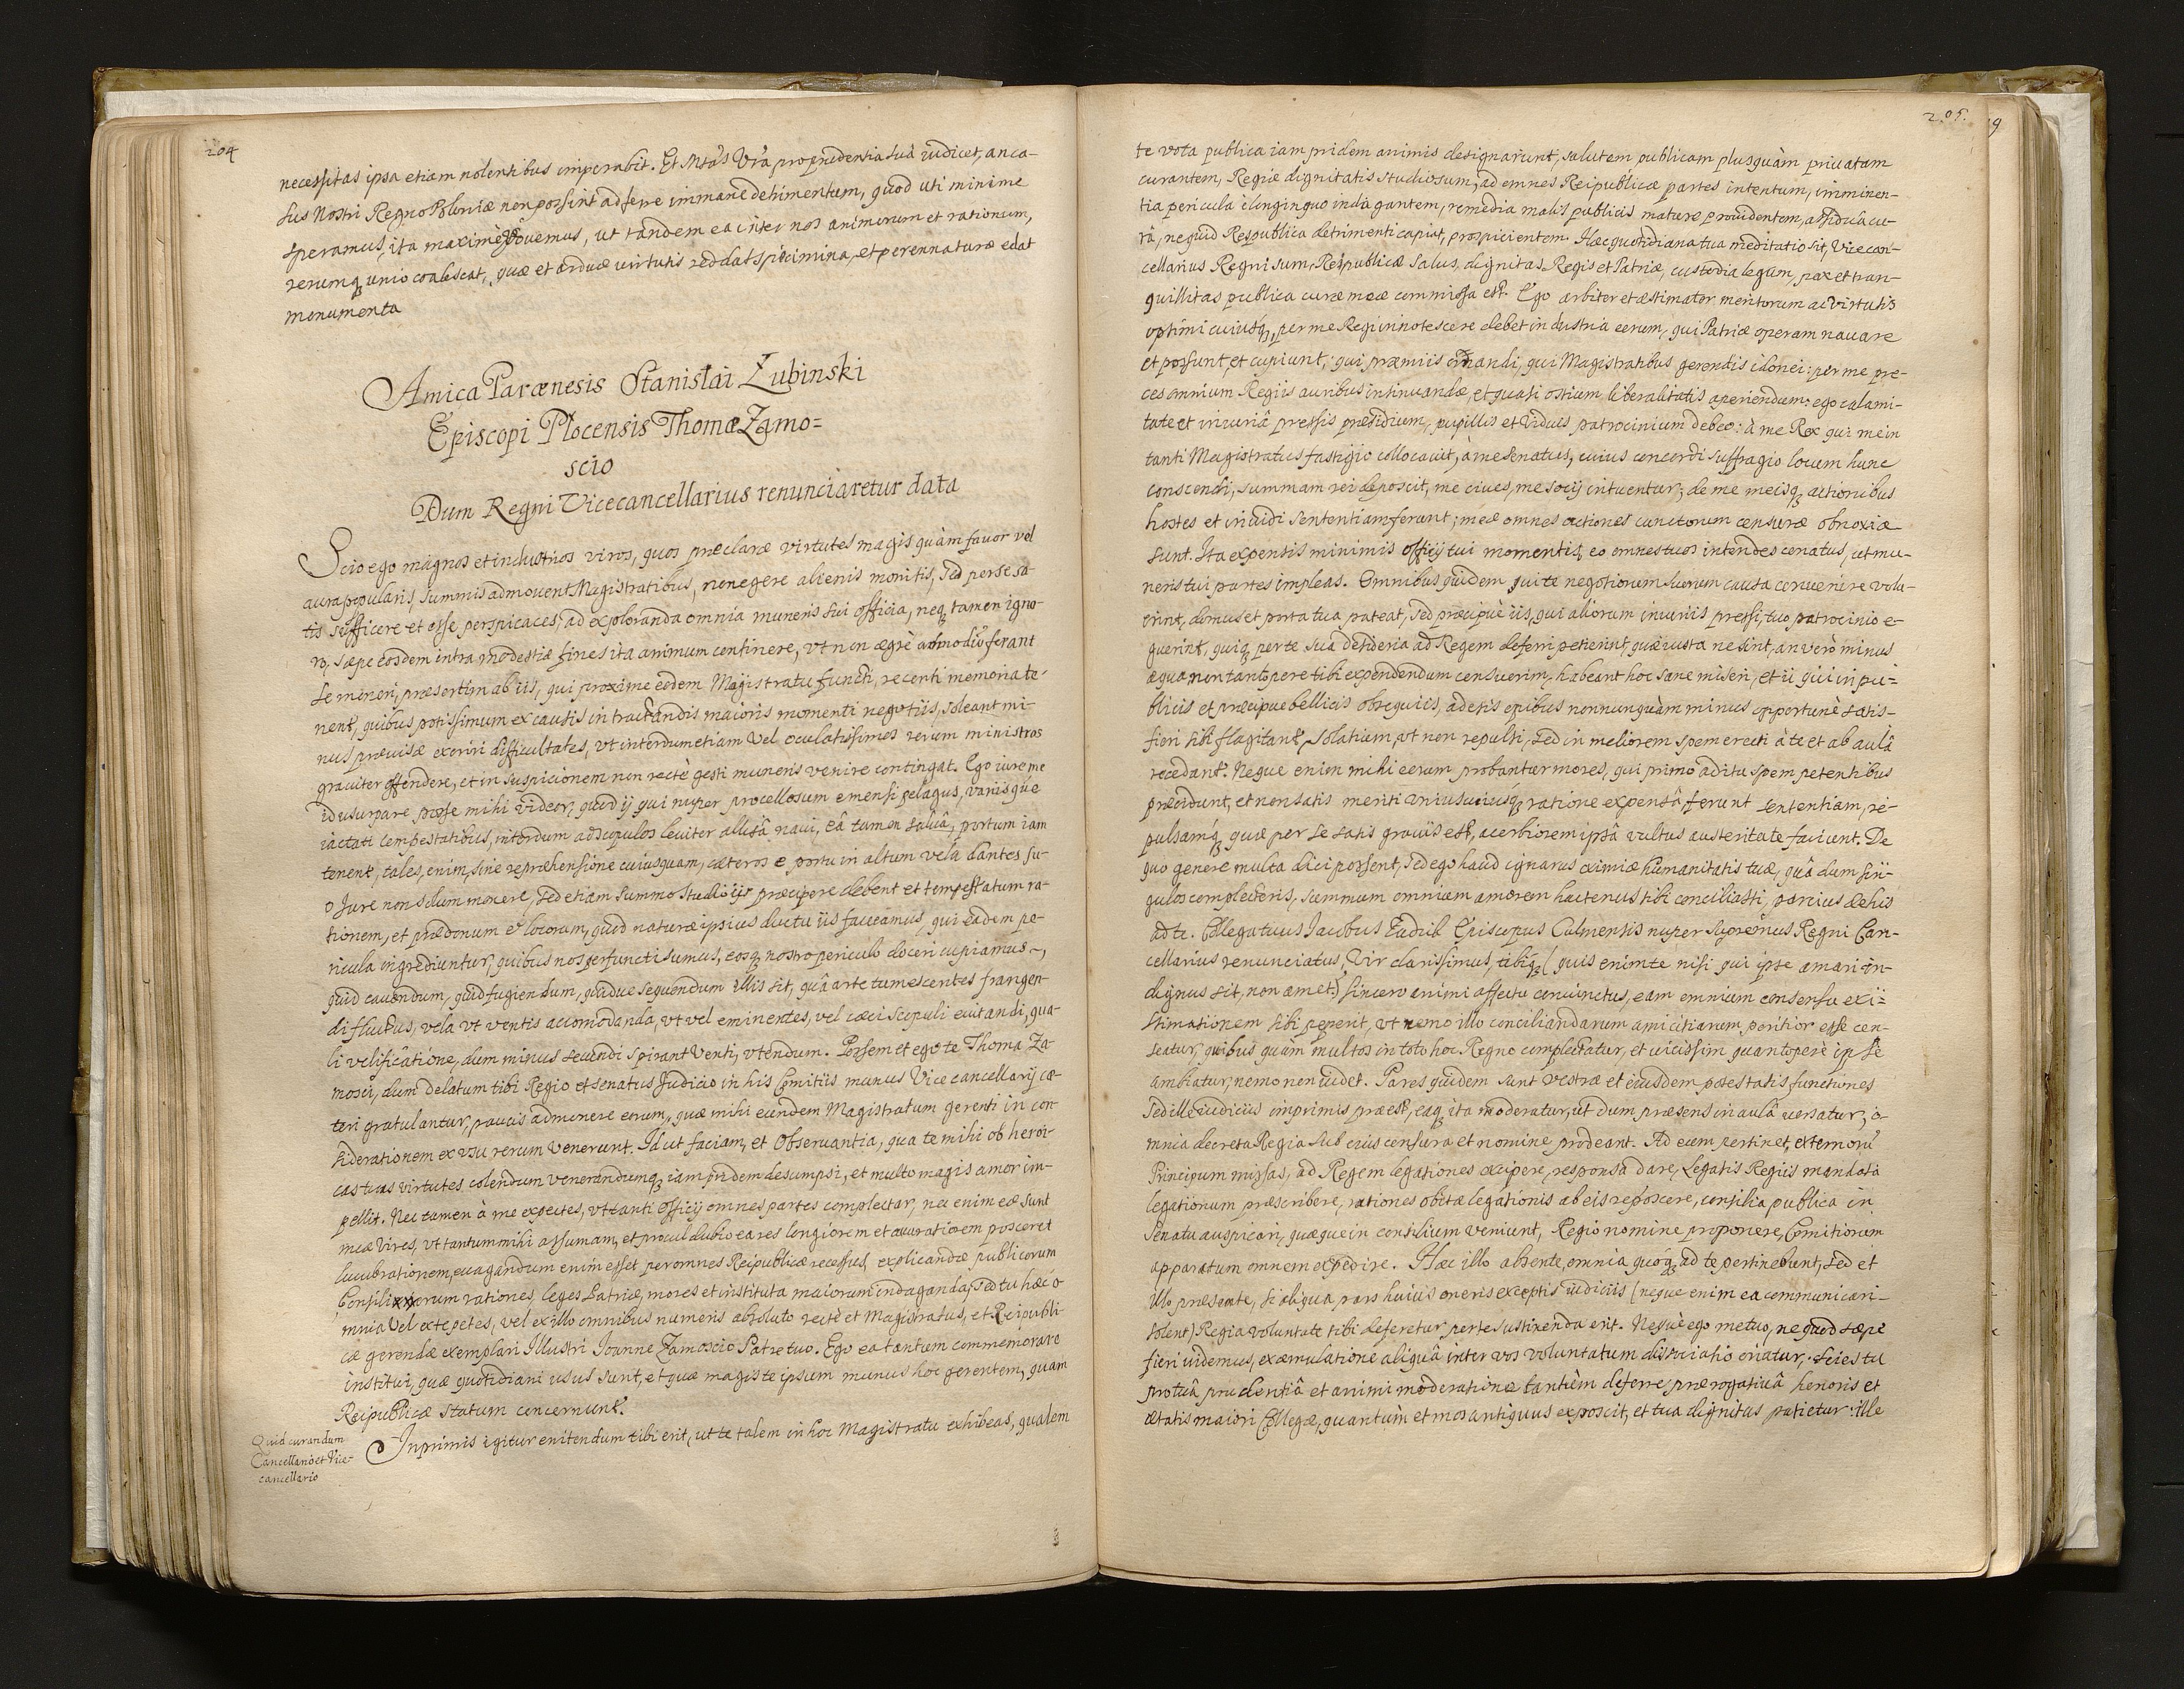 204
necessitas ipsa etiam nolentibus imperabit. Et Mtas Vra pro prudentia sua iudicet, an ca-
sus Nostri Regno Poloniæ non possint adferre immane detrimentum, quod uti minime
speramus, ita maximè vouemus, ut tandem ea inter nos animorum et rationum,
rerumq; unio coalescat, quæ et arduæ virtutis reddat specimina, et perennaturæ edat
monumenta
Amica Parænesis Stanislai Łubinski
Episcopi Płocensis Thomæ Zamo=
scio
Dum Regni Vicecancellarius renunciaretur data
Scio ego magnos et industrios viros, quos præclaræ virtutes magis quàm fauor vel
aura popularis, summis admouent Magistratibus, non egere alienis monitis, sed per se sa-
tis sufficere et esse perspicaces, ad exploranda omnia muneris sui officia, neq; tamen igno-
ro, sæpe eosdem intra modestiæ fines ita animum continere, vt non ægrè admodū ferant
se moneri, præsertim ab iis, qui proxime eodem Magistratu functi, recenti memoria te-
nent, quibus potissimum ex causis in tractandis maioris momenti negotiis, soleant mi-
nus præuisæ exoriri difficultates, vt interdum etiam vel oculatissimos rerum ministros
grauiter offendere, et in suspicionem non rectè gesti muneris venire contingat. Ego iure me
id usurpare posse mihi videor, quod ij qui nuper procellosum emensi pelagus, variisque
iactati tempestatibus, interdum ad scopulos leuiter allisâ naui, eâ tamen saluâ, portum iam
tenent, tales, enim, sine repræhensione cuiusquam, cæteros e portu in altum vela dantes su-
o Jure non solum monere, sed etiam summo studio iis præcipere debent et tempestatum ra-
tionem, et prædonum et locorum, quod naturæ ipsius ductu iis faueamus, qui eadem pe-
ricula ingrediuntur, quibus nos perfuncti sumus, eosq; nostro periculo doceri cupiamus,
quid cauendum, quid fugiendum, quidue sequendum illis sit, quâ arte tumescentes frangen-
di fluctus, vela vt ventis accomodanda, vt vel eminentes, vel cæci scopuli euitandi, qua-
li velificatione, dum minus secundi spirant venti, vtendum. Possem et ego te Thoma Za-
mosci, dum delatum tibi Regio et senatus Judicio in his Comitiis munus Vice cancellarij cæ-
teri gratulantur, paucis admonere eorum, quæ mihi eundem Magistratum gerenti in con-
siderationem ex vsu rerum venerunt. Id ut faciam, et Obseruantia, qua te mihi ob heroi-
cas tuas virtutes colendum venerandumq; iam pridem desumpsi, et multo magis amor im-
pellit. Nec tamen à me expectes, vt tanti officij omnes partes complectar, nec enim eæ sunt
meæ vires, vt tantum mihi assumam, et procul dubio ea res longiorem et accuratiorem posceret
lucubrationem, euagandum enim esset per omnes Reipublicæ recessus, explicandæ publicorum
Consiliorum rationes, leges Patriæ, mores et instituta maiorum indaganda, sed tu hæc o-
mnia vel ex te petes, vel ex illo omnibus numeris absoluto rectè et Magistratus, et Reipubli-
cæ gerendæ exemplari Illustri Ioanne Zamoscio Patre tuo. Ego ea tantum commemorare
institui, quæ quotidiani usus sunt, et quæ magis te ipsum munus hoc gerentem, quam
Reipublicæ statum concernunt.
Quid curandum
Cancellario et Vice-
cancellario
Inprimis igitur enitendum tibi erit, ut te talem in hoc Magistratu exhibeas, qualem
205.
9
te vota publica iam pridem animis designarunt, salutem publicam plusquàm priuatam
curantem, Regiæ dignitatis studiosum, ad omnes Reipublicæ partes intentum, imminen-
tia pericula è longinquo indagantem, remedia malis publicis mature prouidentem, assiduâ cu-
râ, nequid Respublica detrimenti capiat, prospicientem. Hæc quotidiana tua meditatio sit, Vicecan-
cellarius Regni sum, Reipublicæ salus, dignitas Regis et Patriæ, custodia legum, pax et tran-
quillitas publica curæ meæ commissa est. Ego arbiter et æstimator meritorum ac virtutis
optimi cuiusq;, per me Regi innotescere debet industria eorum, qui Patriæ operam nauare
et possunt et cupiunt, qui præmiis ornandi, qui Magistratibus gerendis idonei: per me pre-
ces omnium Regiis auribus insinuandæ, et quasi ostium liberalitatis aperiendum: ego calami-
tate et iniuriâ pressis præsidium, pupillis et viduis patrocinium debeo: à me Rex qui me in
tanti Magistratus fastigio collocauit, à me senatus, cuius concordi suffragio locum hunc
conscendi, summam rei deposcit, me ciues, me socij intuentur, de me meisq; actionibus
hostes et inuidi sententiam ferunt; meæ omnes actiones cunctorum censuræ obnoxiæ
sunt. Ita expensis minimis officij tui momentis, eo omnes tuos intendes conatus, ut mu-
neris tui partes impleas. Omnibus quidem qui te negotiorum suorum causa conuenire volu-
erint, domus et porta tua pateat, sed præcipuè iis, qui aliorum iniuriis pressi, tuo patrocinio e-
guerint, quiq; per te sua desideria ad Regem deferri petierint, quæ iusta ne sint, an verò minus
æqua, non tantopere tibi expendendum censuerim, habeant hoc sane miseri, et ii qui in pu=
blicis et præcipue bellicis obsequiis, adesis opibus nonnunquàm minus opportunè satis-
fieri sibi flagitant, solatium, vt non repulsi, sed in meliorem spem erecti à te et ab aulâ
recedant. Neque enim mihi eorum probantur mores, qui primo aditu spem petentibus
præcidunt, et non satis meriti cuiuscuiusq; ratione expensâ ferunt sententiam, re-
pulsamq; quæ per se satis grauis est, acerbiorem ipsâ vultus austeritate faciunt. De
quo genere multa dici possent, sed ego haud ignarus eximiæ humanitatis tuæ, quâ dum sin-
gulos complecteris, summum omnium amorem hactenus tibi conciliasti, parcius de his
ad te. Collega tuus Iacobus Zadzik Episcopus Culmensis nuper supremus Regni Can-
cellarius renunciatus, Vir clarissimus, tibiq; (quis enim te nisi qui ipse amari in-
dignus sit, non amet) sincero animi affectu coniunctus, eam omnium consensu exi=
stimationem sibi peperit, vt nemo illo conciliandarum amicitiarum peritior esse cen-
seatur, quibus quàm multos in toto hoc Regno complectatur, et uicissim quantoperè ipse
ambiatur, nemo non uidet. Pares quidem sunt vestræ et eiusdem potestatis functiones
sed ille iudiciis imprimis præest, eaq; ita moderatur, ut dum præsens in aulâ uersatur, o-
mnia decreta Regia sub eius censura et nomine prodeant. Ad eum pertinet, externorū
Principum missas, ad Regem legationes excipere, responsa dare, Legatis Regiis mandata
legationum præscribere, rationes obitæ legationis ab eis reposcere, consilia publica in
Senatu auspicari, quæque in consilium veniunt, Regio nomine proponere, Comitiorum
apparatum omnem expedire. Hæc illo absente, omnia quoq; ad te pertinebunt, sed et
illo præsente, si aliqua pars huius oneris exceptis iudiciis (neque enim ea communicari
solent) Regia voluntate tibi deferetur per te sustinenda erit. Neque ego metuo, ne quod sæpe
fieri uidemus, ex æmulatione aliquâ inter vos voluntatum dissociatio oriatur, scies tu
pro tuâ prudentiâ et animi moderatione tantùm deferre prærogatiuâ honoris et
ætatis maiori Collegæ, quantùm et mos antiquus exposcit, et tua dignitas patietur: ille